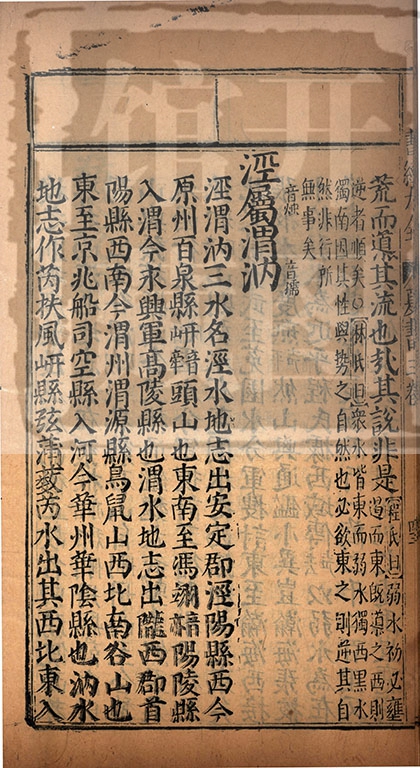 荒而導其流也孔其說非是程氏曰弱水初必壅
遏而東旣導之西則
逆者順矣○林氏曰衆水皆東而弱水獨西黑水
獨南因其性與勢之自然也必欲東之則逆其自
然非行所
無事矣
涇屬渭汭
音燭 音
涇渭汭三水名涇水地志出安定郡涇陽縣西今
原州百泉縣岍頭山也東南至馮翊陽陵縣
入渭今永興軍高陵縣也渭水地志出隴西郡首
陽縣西南今渭州渭源縣鳥鼠山西北南谷山也
東至京兆船司空縣入河今華州華陰縣也汭水
地志作芮扶風岍縣弦蒲藪芮水出其西北東入